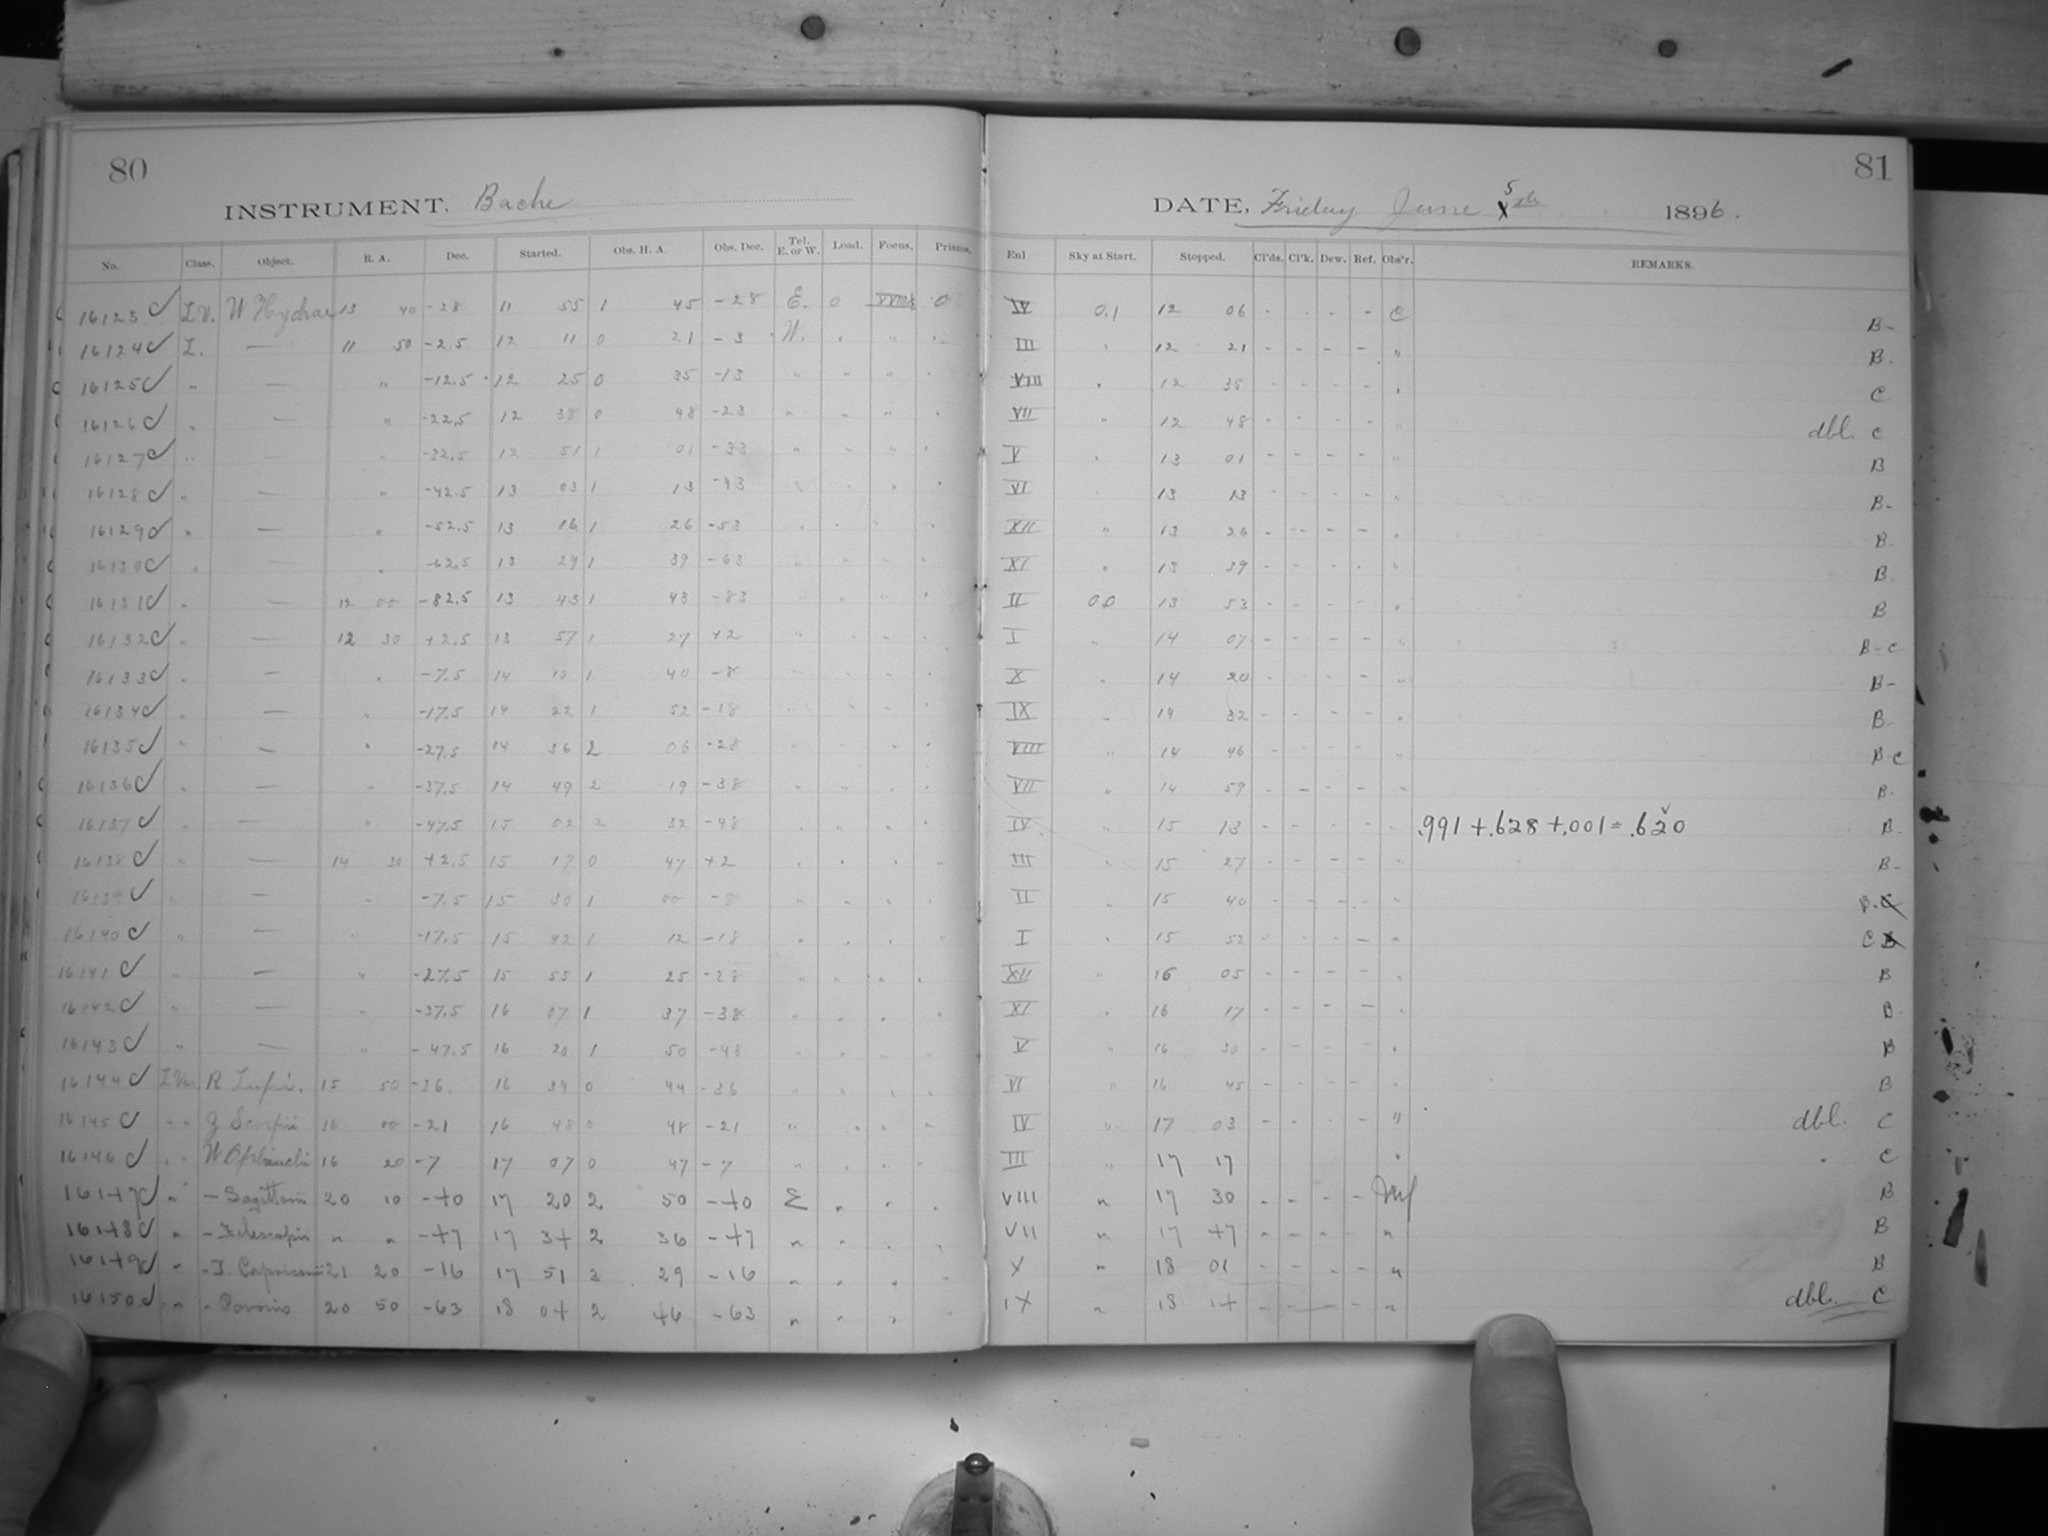 80
INSTRUMENT. Bache
No. Class. Object. R. A. Dec. Started. Obs. H. A. Obs. Dec. Tel. E. or W. Load. Focus. Prisms.
16123 L.V. W Hydrae 13 40 -28 11 55 1 45 -28 E. 0 0
16124 L. — 11 50 -2.5 12 11 0 21 -3 W. " " "
16125 " — " -12.5 12 25 0 35 -13 " " " "
16126 " — " -22.5 12 38 0 48 -23 " " " "
16127 " — " -32.5 12 51 1 01 -33 " " " "
16128 " — " -42.5 13 03 1 13 -43 " " " "
16129 " — " -52.5 13 16 1 26 -53 " " " "
16130 " — " -62.5 13 29 1 39 -63 " " " "
16131 " — 12 00 -82.5 13 43 1 43 -83 " " " "
16132 " — 12 30 +2.5 13 57 1 27 +2 " " " "
16133 " — " -7.5 14 10 1 40 -8 " " " "
16134 " — " -17.5 14 22 1 52 -18 " " " "
16135 " — " -27.5 14 36 2 06 -28 " " " "
16136 " — " -37.5 14 49 2 19 -38 " " " "
16137 " — " -47.5 15 02 2 32 -48 " " " "
16138 " — 14 30 +2.5 15 17 0 47 +2 " " " "
16139 " — " -7.5 15 30 1 00 -8 " " " "
16140 " — " -17.5 15 42 1 12 -18 " " " "
16141 " — " -27.5 15 55 1 25 -28 " " " "
16142 " — " -37.5 16 07 1 37 -38 " " " "
16143 " — " -47.5 16 20 1 50 -48 " " " "
16144 L.Var. R Lupi. 15 50 -36. 16 34 0 44 -36 " " " "
16145 " " Scorpii 16 00 -21 16 48 0 48 -21 " " " "
16146 " " W Ophiuchi 16 20 -7 17 07 0 47 -7 " " " "
16147 " — Sagittarii 20 10 -40 17 20 2 50 -40 E " " "
16148 " — Telescopii " " -47 17 34 2 36 -47 " " " "
16149 " - T Capricorni 21 20 -16 17 51 3 29 -16 " " " "
16150 " - Pavonis 20 50 -63 18 04 2 46 -63 " " " "
81
DATE, Friday June 5th 1896.
Enl Sky at Start. Stopped. Cl'ds. Cl'k. Dew. Ref. Obs'r. REMARKS.
IV 0.1 12 06 - - - - C B-
III " 12 21 - - - - " B-
VIII " 12 35 - - - - " C
VII " 12 48 - - - - " dbl. C
V " 13 01 - - - - " B
VI " 13 13 - - - - " B-
XII " 13 26 - - - - " B-
XI " 13 39 - - - - " B.
II 0.0 13 53 - - - - " B
I " 14 07 - - - - " B-C
X " 14 20 - - - - " B-
IX " 14 32 - - - - " B-
VIII " 14 46 - - - - " B-C
VII " 14 59 - - - - " B-
IV " 15 13 - - - - " .991 + .628 + .001 = .620 B-
III " 15 27 - - - - " B-
II " 15 40 - - - - " B-
I " 15 52 - - - - " C
XII " 16 05 - - - - " B
XI " 16 17 - - - - " B-
V " 16 30 - - - - " B
VI " 16 45 - - - - " B
IV " 17 03 - - - - " dbl. C
III " 17 17 " C
VIII " 17 30 - - - - B
VII " 17 47 - - - - " B
X " 18 01 - - - - " B
IX " 18 14 - - - - " dbl. C